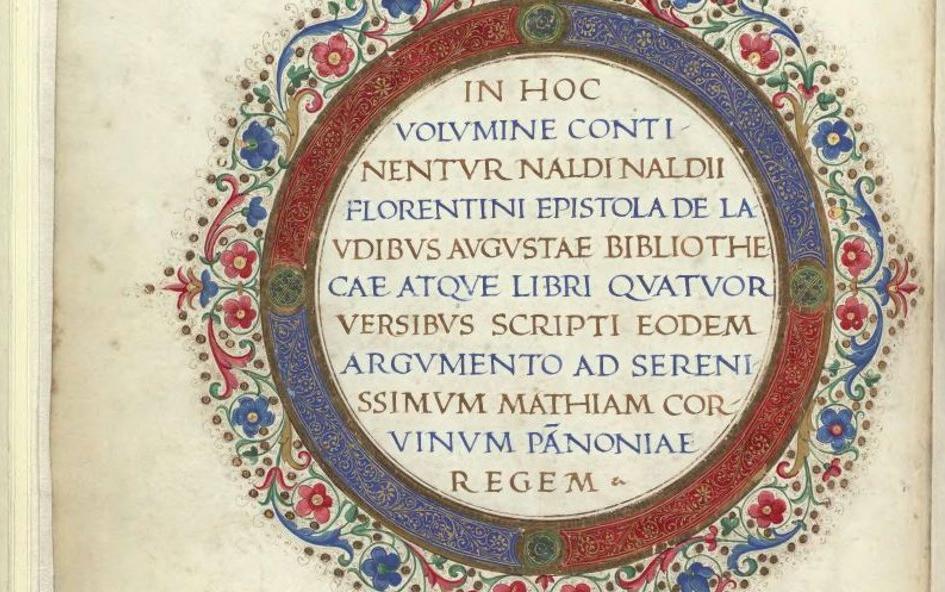 IN HOC
VOLVMINE CONTI-
NENTVR NALDI NALDII
FLORENTINI EPISTOLA DE LA
VDIBVS AVGVSTAE BIBLIOTHE
CAE ATQVE LIBRI QVATVOR
VERSIBVS SCRIPTI EODEM
ARGVMENTO AD SERENI
SSIMVM MATHIAM COR-
VINVM PÃNONIAE
REGEM